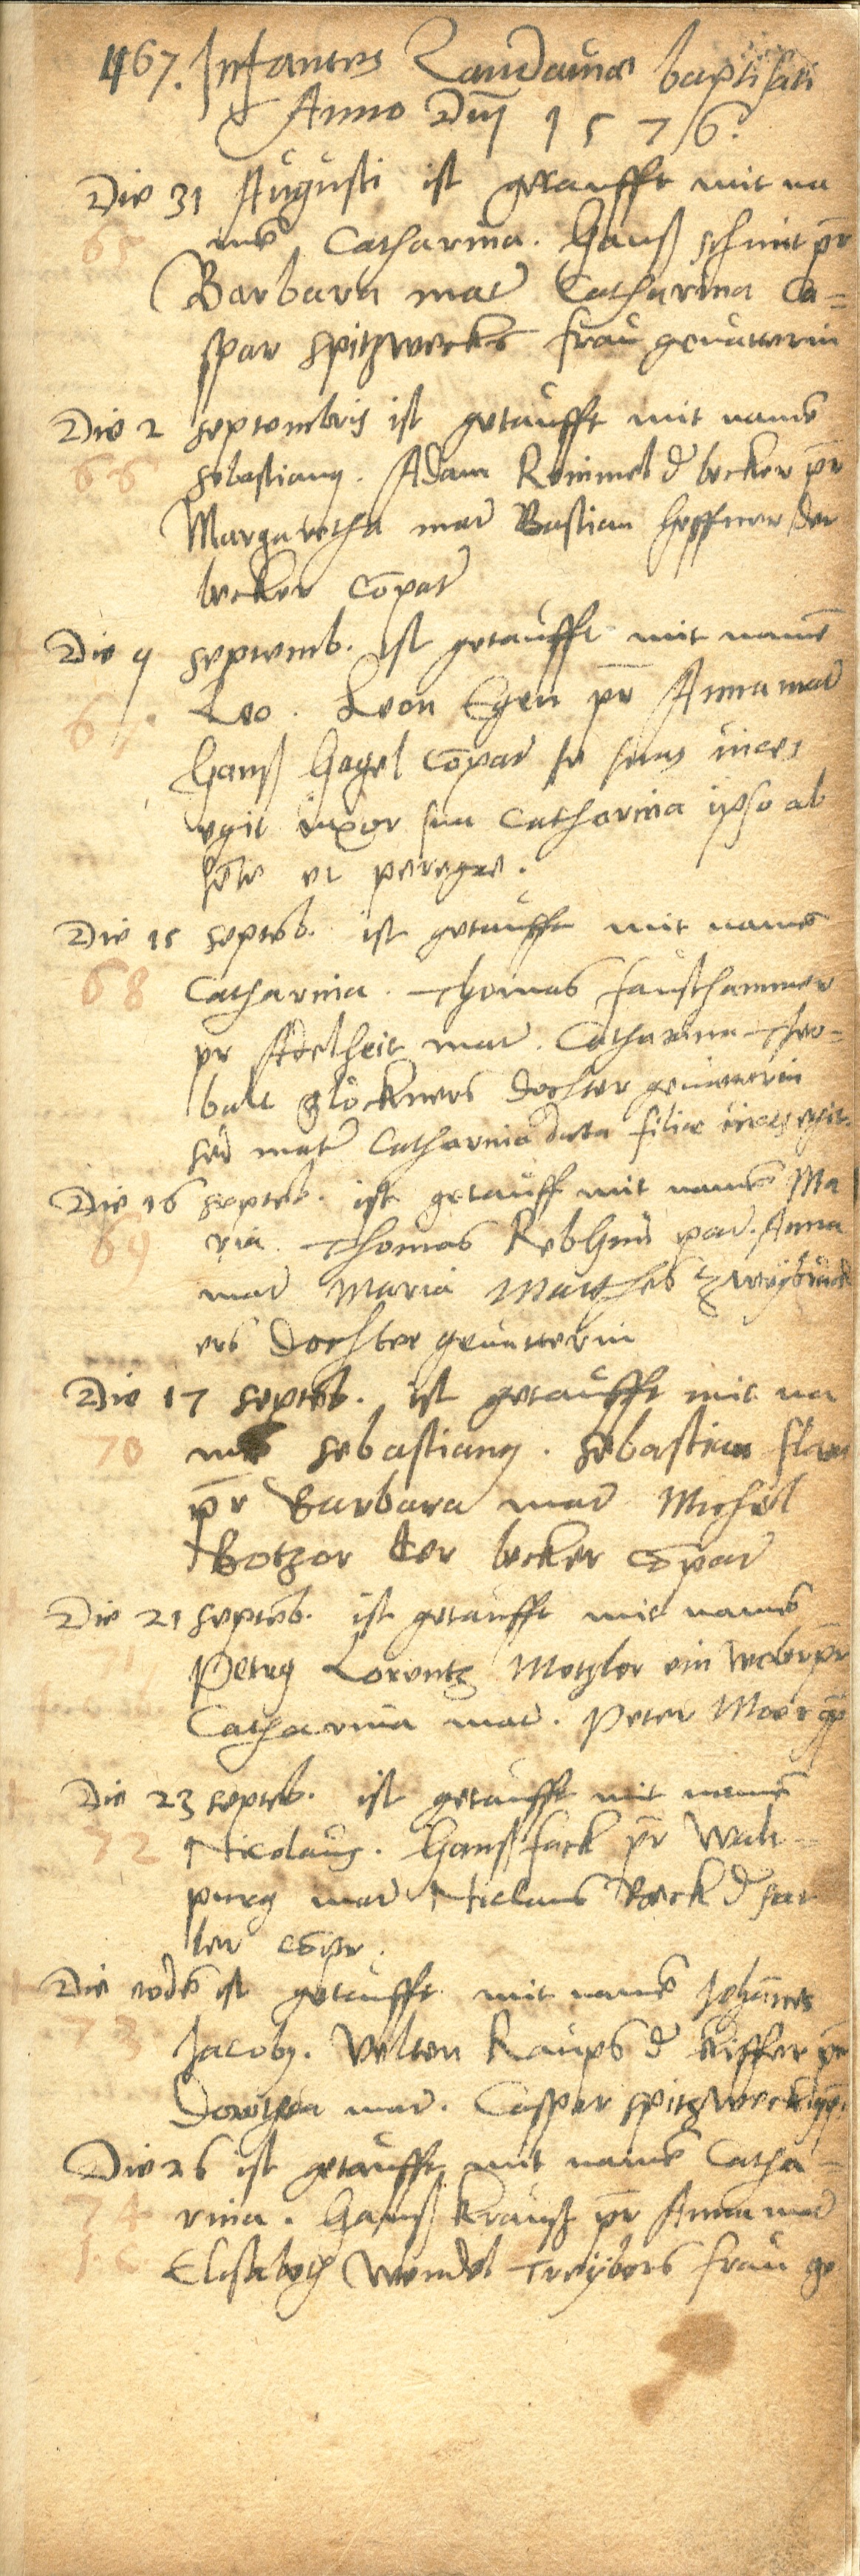 467. Infantes Landauiæ baptisati
Anno Dm̄ 1576.
Die 31 Augusti ist getaufft mit na
65
mē Catharina. Hanß schmit pr̄
Barbara mat̄ Catharina Ca=
spar Spitzwecks frau geuatterin
Die 2 septembris ist getaufft mit namē
66
Sebastiang. Adam Remmel d̄ becker pr̄
Margaretha mat̄ Bastian Heffner der
becker Cōpat̄
Die 9 septemb. ist getaufft mit namē
67
Leo. Leon Egen pr̄ Anna mat̄
Hanß Gagel Cōpat̄ sed huius uices
egit uxor sua Catharina ipso ab
sēte et peregre.
Die 15 septēb. ist getaufft mit namē
68
Catharina. Thomas fausthammer
pr Adelheit mat̄. Catharina Theo=
balt glöckners dochter geuatterin
sed mat̄ Catharina filiæ uices egit.
Die 16 septēb. ist getauff mit namē Ma
69
ria. Thomas Rebhun pat̄. Anna
mat̄ Maria Matthes Zweybruck
ers dochter geuatterin
Die 17 septēb. ist getaufft mit na
70
mē Sebastiang. Sebastian
pr̄ Barbara mat̄ Michel
Botzor der becker Cōpat̄
Die 21 septēb. ist getaufft mit namē
Petrg Lorentz Metzler ein weber pr̄
Catharina mat̄. Peter Moer
Die 23 septēb. ist getaufft mit namē
72
Nicolaug. Hanß fack pr̄ Walt=
purg mat̄ Niclaus Beck d̄ sat
ler Cōpr.
Die eodē ist getaufft mit namē Johānes
73
Jacobg. Velten Raups d̄ kiffer pr̄
Dorothea mat̄. Caspar Spitzweck
Die 26 ist getaufft mit namē Catha=
74
rina. Hanß krauß pr̄ Anna mat̄
Elisabeth Wendel Treybers frau ge